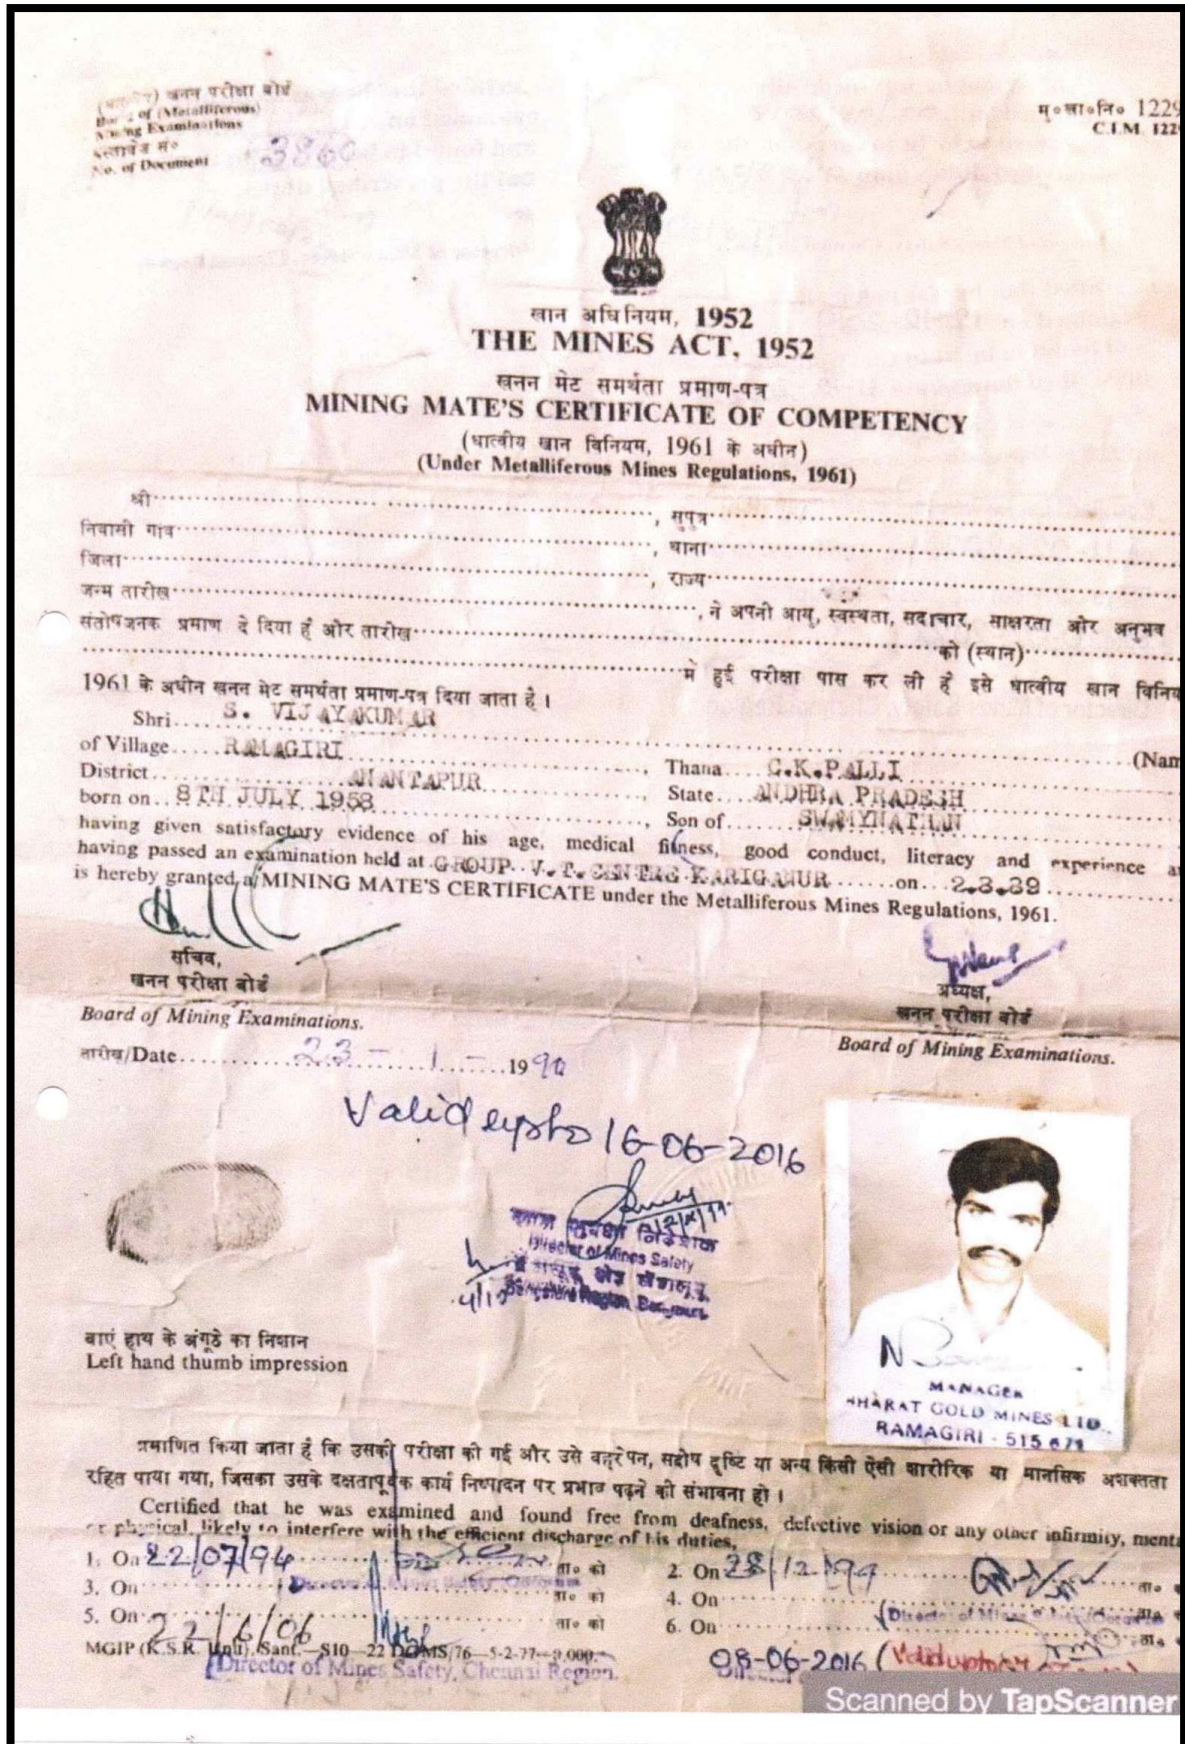 खनन परीक्षा बोर्ड
of (Metalliferous)
Examinations
No. of Document 3860
मु०खा०नि० 1229
C.I.M. 122
खान अधिनियम, 1952
THE MINES ACT, 1952
खनन मेट समर्थता प्रमाण-पत्र
MINING MATE'S CERTIFICATE OF COMPETENCY
(धात्वीय खान विनियम, 1961 के अधीन)
(Under Metalliferous Mines Regulations, 1961)
श्री , सुपुत्र
निवासी गांव , थाना
जिला , राज्य
जन्म तारीख , ने अपनी आयु, स्वस्थता, सदाचार, साक्षरता और अनुभव
संतोषजनक प्रमाण दे दिया है और तारीख को (स्थान)
में हुई परीक्षा पास कर ली है इसे धात्वीय खान विनिय
1961 के अधीन खनन मेट समर्थता प्रमाण-पत्र दिया जाता है ।
Shri S. VIJAYAKUMAR (Nam
of Village RAMAGIRI Thana C.K.PALLI
District ANANTAPUR, State ANDHRA PRADESH
born on 8TH JULY 1958, Son of SWAMYNATHAN
having given satisfactory evidence of his age, medical fitness, good conduct, literacy and experience a
having passed an examination held at GROUP V.T. CENTRE KARIGANUR on 2.3.89
is hereby granted a MINING MATE'S CERTIFICATE under the Metalliferous Mines Regulations, 1961.
सचिव,
खनन परीक्षा बोर्ड
Board of Mining Examinations.
अध्यक्ष,
खनन परीक्षा बोर्ड
Board of Mining Examinations.
तारीख/Date 23 - 1 - 1990
Valid upto 16-06-2016
Director of Mines Safety
बाएं हाथ के अंगूठे का निशान
Left hand thumb impression
MANAGER
BHARAT GOLD MINES LTD.,
RAMAGIRI - 515 671
प्रमाणित किया जाता है कि उसकी परीक्षा की गई और उसे बहरेपन, सदोष दृष्टि या अन्य किसी ऐसी शारीरिक या मानसिक अशक्तता
रहित पाया गया, जिसका उसके दक्षतापूर्वक कार्य निष्पादन पर प्रभाव पड़ने की संभावना हो ।
Certified that he was examined and found free from deafness, defective vision or any other infirmity, menta
or physical, likely to interfere with the efficient discharge of his duties,
1. On 22/07/94 ता० को 2. On 28/12/99 ता०
3. On ता० को 4. On
5. On 22/6/06 ता० को 6. On
MGIP (K.S.R. Unit), Sant.—S10—22 DGMS/76—5-2-77—9,000.
Director of Mines Safety, Chennai Region.
08-06-2016 (Valid upto
Scanned by TapScanner